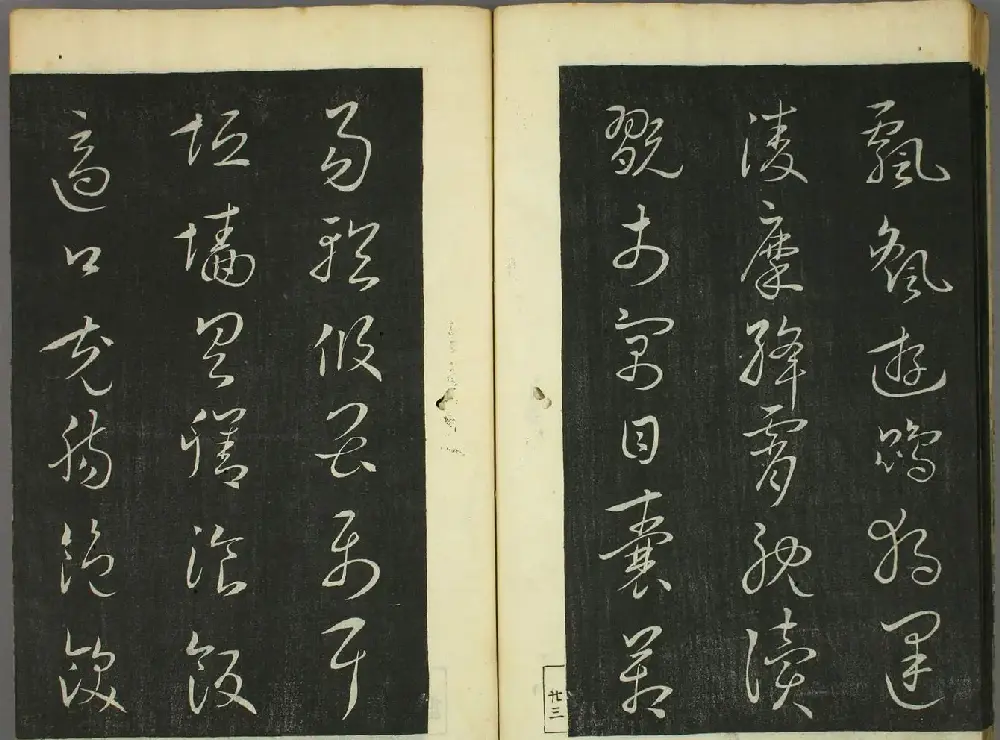 飄颻遊鵾獨運
凌摩絳霄耽讀
翫市寓目囊箱
易輶攸畏屬耳
垣墻具膳飡飯
適口充腸飽飫
廿三